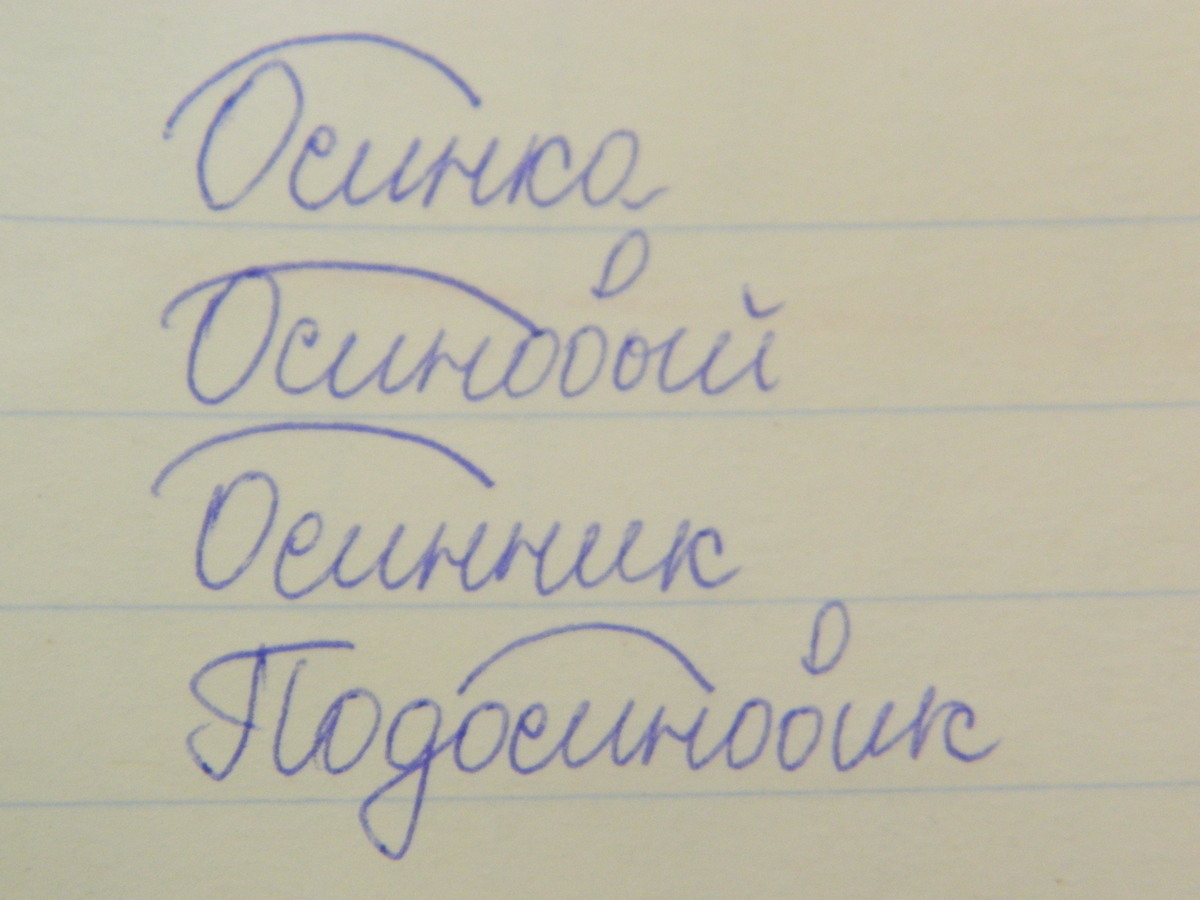 Осинка
Осиновый
Осинник
Подосиновик